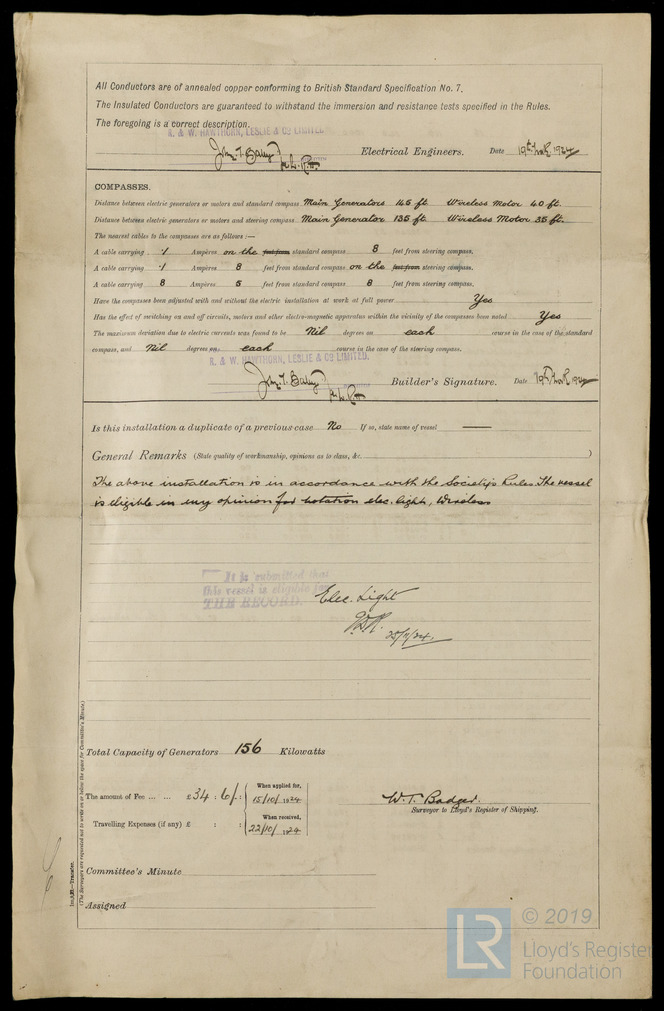 All Conductors are of annealed copper conforming to British Standard Specification No. 7.
The Insulated Conductors are guaranteed to withstand the immersion and resistance tests specified in the Rules.
The foregoing is a correct description.
R. & W. HAWTHORN, LESLIE & CO LIMITED
John T. Batey Electrical Engineers. Date 19th 1924
COMPASSES.
Distance between electric generators or motors and standard compass Main Generators 145 ft. Wireless Motor 40 ft.
Distance between electric generators or motors and steering compass Main Generator 135 ft. Wireless Motor 35 ft.
The nearest cables to the compasses are as follows :—
A cable carrying .1 Ampères on the feet from standard compass 8 feet from steering compass.
A cable carrying .1 Ampères 8 feet from standard compass on the feet from steering compass.
A cable carrying 8 Ampères 5 feet from standard compass 8 feet from steering compass.
Have the compasses been adjusted with and without the electric installation at work at full power Yes
Has the effect of switching on and off circuits, motors and other electro-magnetic apparatus within the vicinity of the compasses been noted Yes
The maximum deviation due to electric currents was found to be Nil degrees on each course in the case of the standard
compass, and Nil degrees on each course in the case of the steering compass.
R. & W. HAWTHORN, LESLIE & CO LIMITED.
John T. Batey Builder's Signature. Date 19th 1924
Is this installation a duplicate of a previous case No If so, state name of vessel ——
General Remarks (State quality of workmanship, opinions as to class, &c. )
The above installation is in accordance with the Society's Rules. The vessel
is eligible in my opinion for notation elec. light, Wireless
It is submitted that
this vessel is eligible for
THE RECORD.
Elec. Light
25/11/24.
Total Capacity of Generators 156 Kilowatts
The amount of Fee ... ... £34 : 6/- :
When applied for,
15/10/1924
Travelling Expenses (if any) £ : :
When received,
22/10/1924
W. T. Badger.
Surveyor to Lloyd's Register of Shipping.
Committee's Minute
Assigned
(The Surveyors are requested not to write on or below the space for Committee's Minute.)
LR
© 2019
Lloyd's Register
Foundation